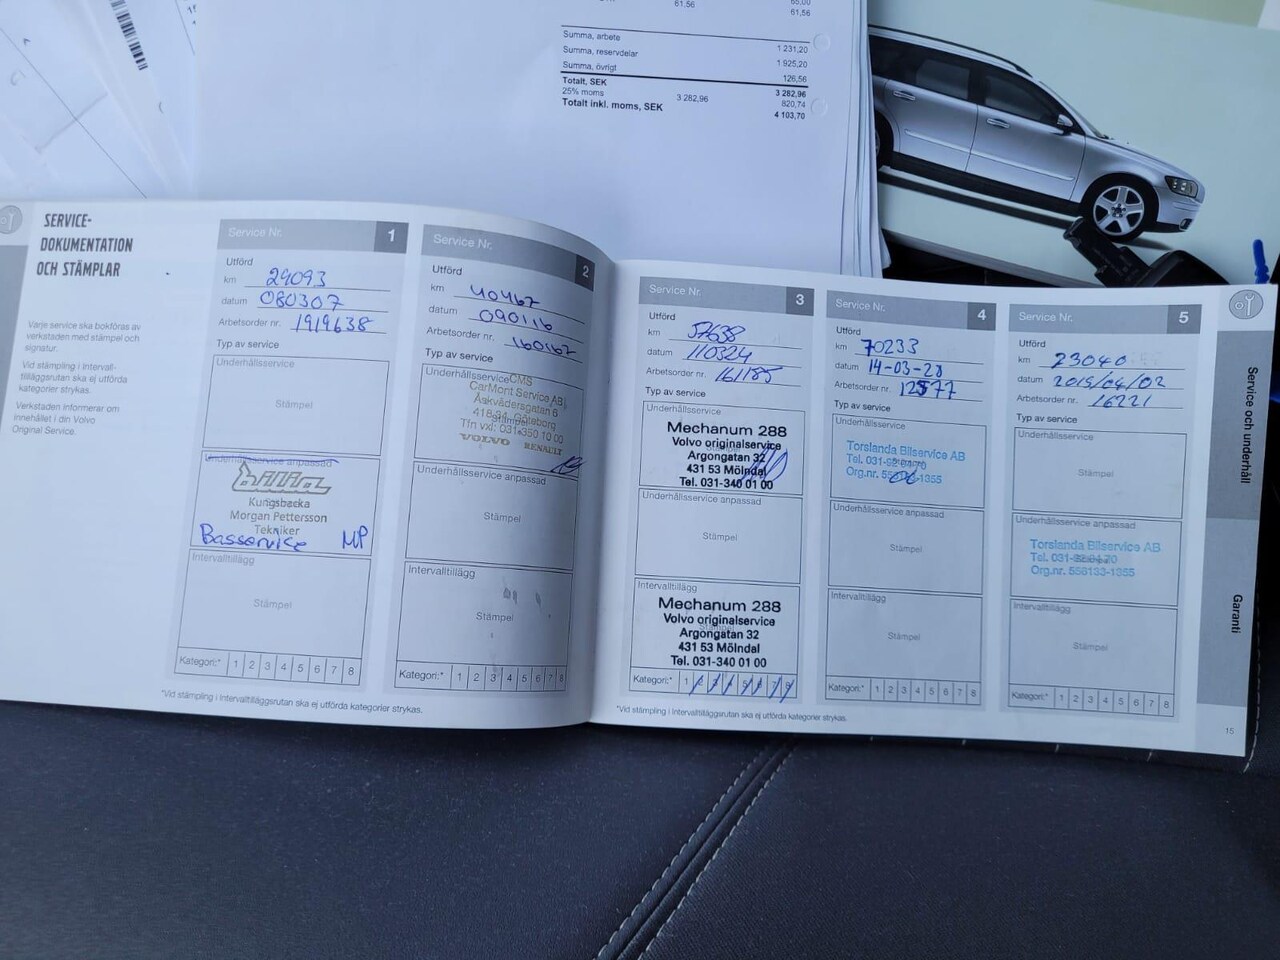 61,56
65,00
61,56
Summa, arbete 1 231,20
Summa, reservdelar 1 925,20
Summa, övrigt 126,56
Totalt, SEK 3 282,96
25% moms 3 282,96 820,74
Totalt inkl. moms, SEK 4 103,70
SERVICE-
DOKUMENTATION
OCH STÄMPLAR
Varje service ska bokföras av
verkstaden med stämpel och
signatur.
Vid stämpling i Intervall-
tilläggsrutan ska ej utförda
kategorier strykas.
Verkstaden informerar om
innehållet i din Volvo
Original Service.
Service Nr. 1
Utförd
km 29093
datum 080307
Arbetsorder nr. 1919638
Typ av service
Underhållsservice
Stämpel
Underhållsservice anpassad
bilia
Stämpel
Kungsbacka
Morgan Pettersson
Tekniker
Basservice MP
Intervalltillägg
Stämpel
Kategori:* 1 2 3 4 5 6 7 8
*Vid stämpling i Intervalltilläggsrutan ska ej utförda kategorier strykas.
Service Nr. 2
Utförd
km 40467
datum 090116
Arbetsorder nr. 160162
Typ av service
Underhållsservice
CMS
CarMont Service AB
Åskvädersgatan 6
418 34 Göteborg
Stämpel
Tfn vxl: 031-350 10 00
VOLVO RENAULT
Underhållsservice anpassad
Stämpel
Intervalltillägg
Stämpel
Kategori:* 1 2 3 4 5 6 7 8
Service Nr. 3
Utförd
km 57638
datum 110324
Arbetsorder nr. 161185
Typ av service
Underhållsservice
Mechanum 288
Volvo originalservice
Stämpel
Argongatan 32
431 53 Mölndal
Tel. 031-340 01 00
Underhållsservice anpassad
Stämpel
Intervalltillägg
Mechanum 288
Volvo originalservice
Stämpel
Argongatan 32
431 53 Mölndal
Tel. 031-340 01 00
Kategori:* 1 2 3 4 5 6 7 8
*Vid stämpling i Intervalltilläggsrutan ska ej utförda kategorier strykas.
Service Nr. 4
Utförd
km 70233
datum 14-03-28
Arbetsorder nr. 12577
Typ av service
Underhållsservice
Torslanda Bilservice AB
Tel. 031-92 04 70
Stämpel
Org.nr. 556133-1355
Underhållsservice anpassad
Stämpel
Intervalltillägg
Stämpel
Kategori:* 1 2 3 4 5 6 7 8
Service Nr. 5
Utförd
km 73040
datum 2015/04/02
Arbetsorder nr. 16221
Typ av service
Underhållsservice
Stämpel
Underhållsservice anpassad
Torslanda Bilservice AB
Tel. 031-92 04 70
Stämpel
Org.nr. 556133-1355
Intervalltillägg
Stämpel
Kategori:* 1 2 3 4 5 6 7 8
Service och underhåll
Garanti
15